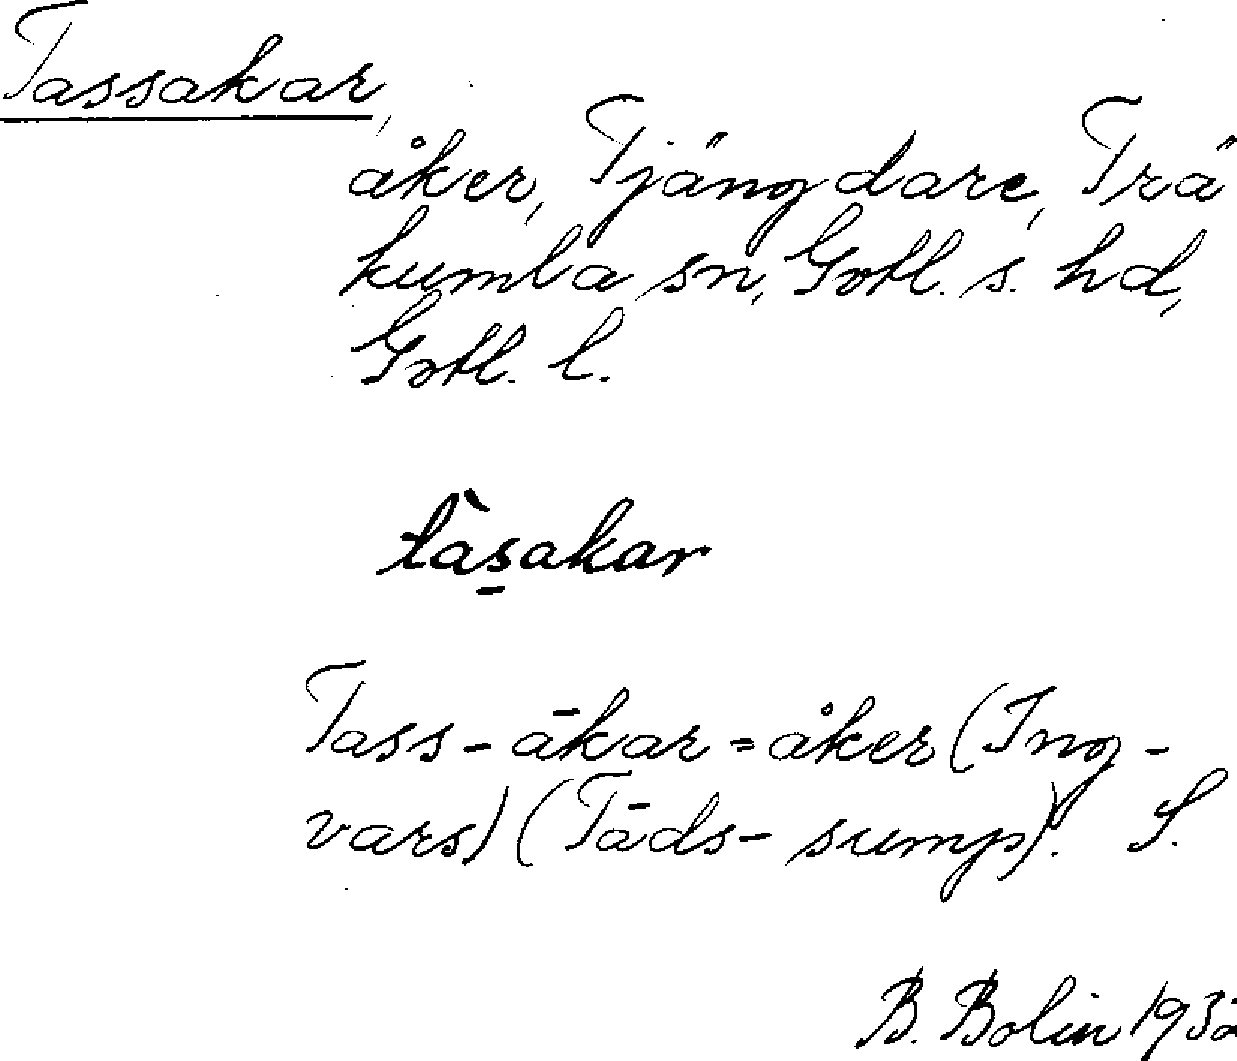 Tassakar,
åker, Tjängdare, Trä
kumla sn, Gotl. s. hd,
Gotl. l.
tàs̱akar
Tass-ākar = åker (Ing-
vars) (Tāds-sump). S.
B. Bolin 1932